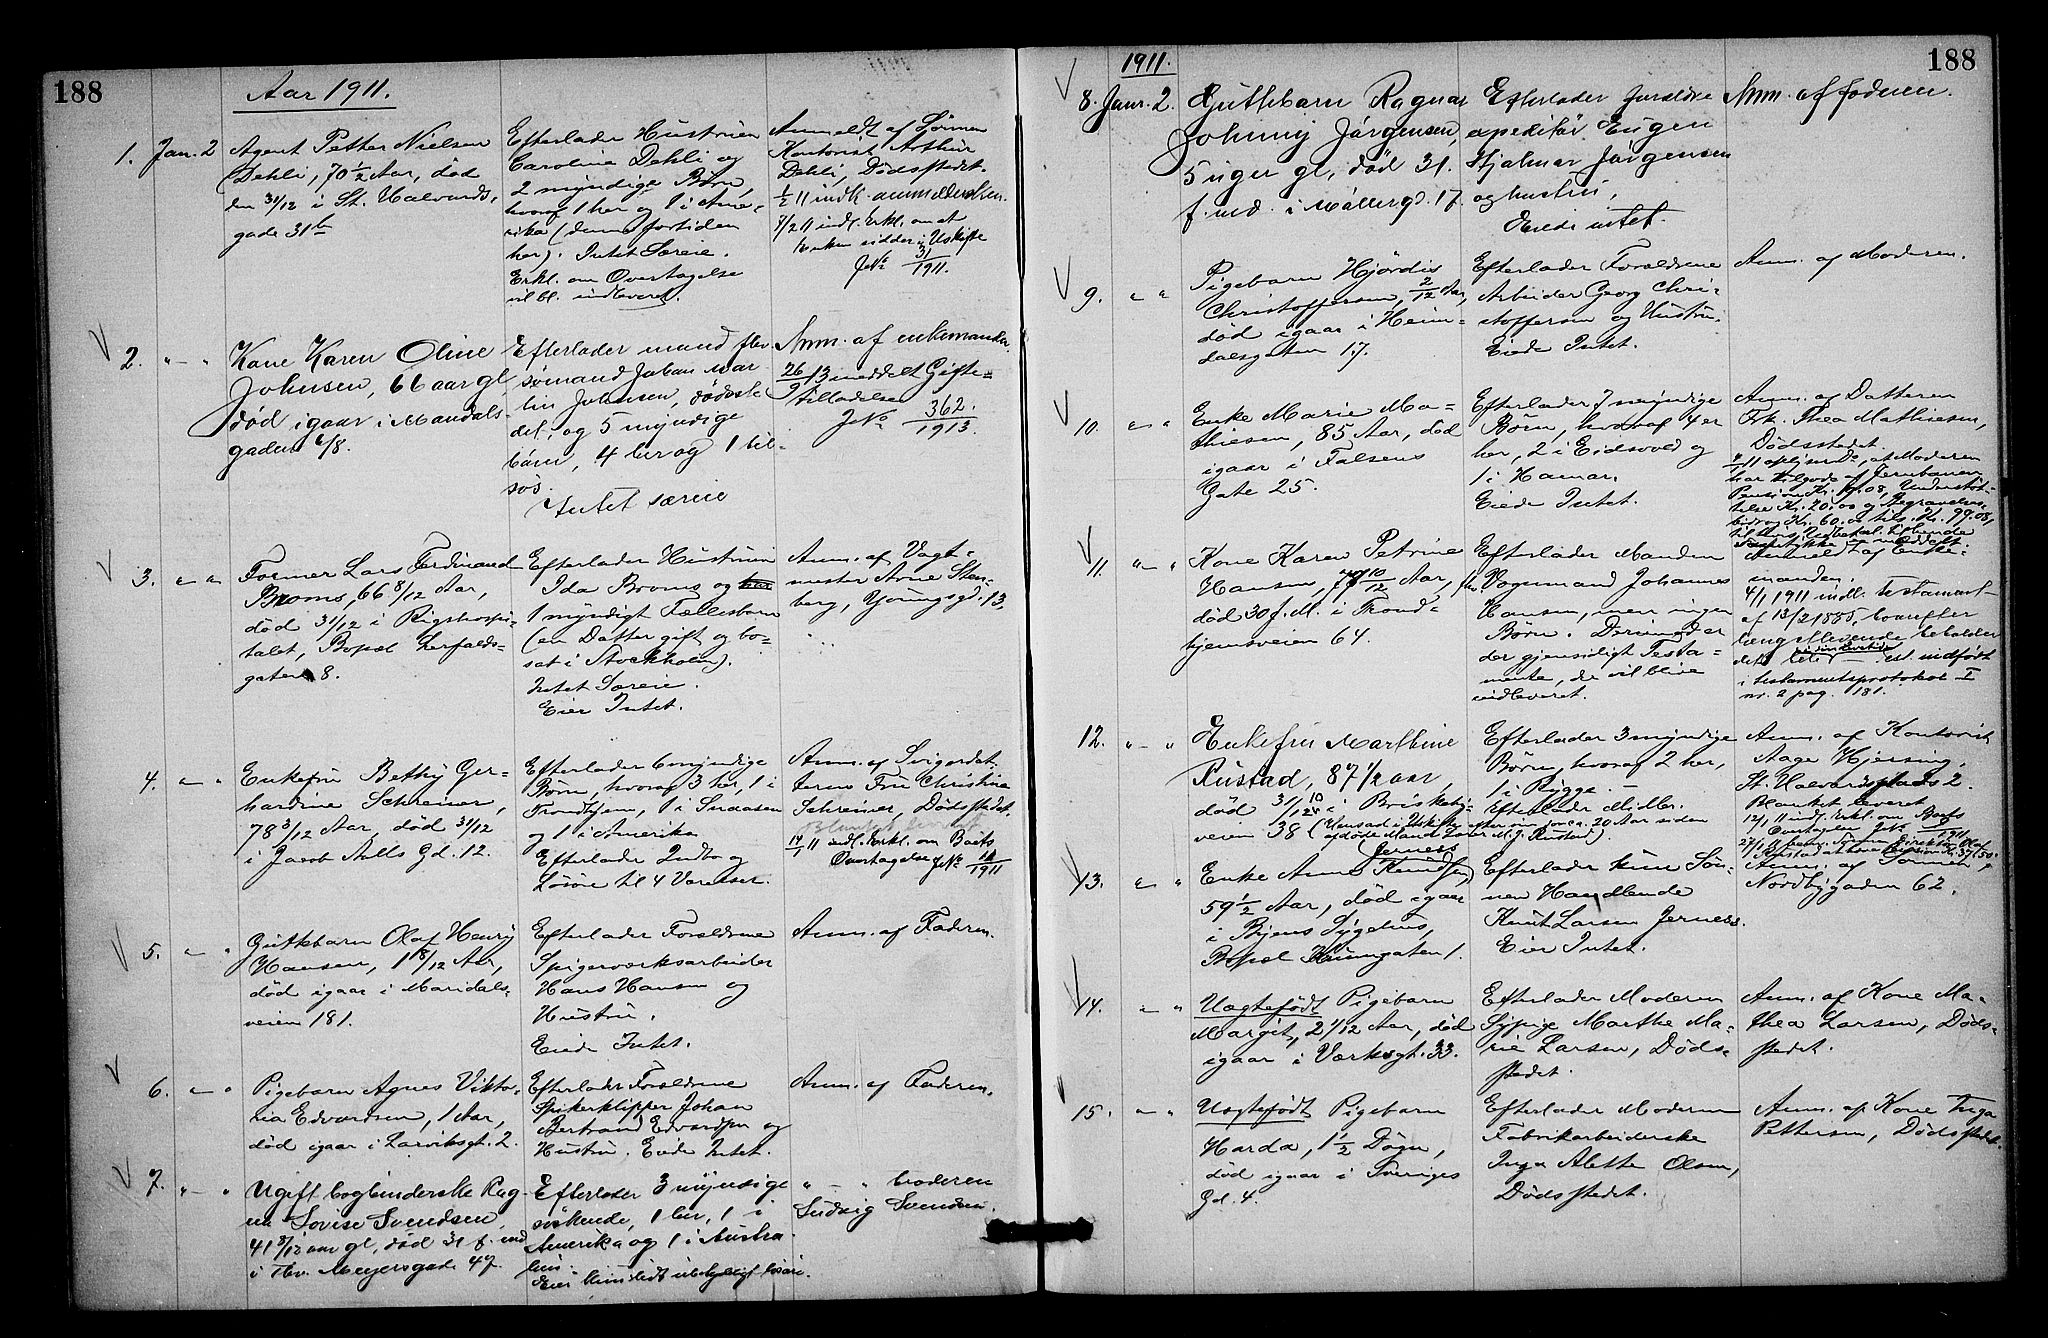 188
Aar 1911.
1. Jan. 2
Agent Petter Nielsen
Dehli, 70 1/2 Aar, død
den 31/12 i St. Halvards,
gade 31b
Efterlader Hustruen
Caroline Dehli og
2 myndige Børn,
hvoraf 1 her og 1 i Ame-
rika (denne fortiden
her). Intet Særeie.
Erkl. om Overtagelse
vil bl. indleveret.
Anmeldt af Sønnen
Kontorist Arthur
Dehli, Dødsstedet.
7/2 11 indl. Erkl. om at
Enken sidder i Uskifte
JNo 31/1911.
2. " - "
Kone Karen Oline
Johnsen, 66 aar gl,
død igaar i Mandals-
gaden 6/8.
Efterlader mand fhv
sømand Johan Mar-
tin Johnsen, dødsste-
det, og 5 myndige
børn, 4 her og 1 til-
søs.
Intet særeie
Anm. af enkemanden.
26/9 13 meddelt Gifte-
tilladelse
JNo 362/1913.
3. " "
Former Lars Ferdinand
Broms, 66 8/12 Aar,
død 31/12 i Rigshospi-
talet, Bopæl Herfalds-
gaten 8.
Efterlader Hustruen
Ida Broms og
1 myndigt Fællesbarn
(en Datter gift og bo-
sat i Stockholm).
Intet Særeie.
Eier Intet.
Anm. af Vagt-
mester Arne Sten-
berg, Youngsgd. 13.
4. " "
Enkefru Bethy Ger-
hardine Schreiner,
78 3/12 Aar, død 31/12
i Jacob Aalls Gd. 12.
Efterlader 6 myndige
Børn, hvoraf 3 her, 1 i
Trondhjem, 1 i Snaasen
og 1 i Amerika
Efterlader Indbo og
Løsøre til 4 Værelser.
Anm. af Svigerdat-
teren Fru Christine
Schreiner, Dødsstedet.
14/1 11 indl. Erkl. om Boets
Overtagelse JNo 11/1911
5. " "
Guttebarn Olaf Henry
Hansen, 1 8/12 Aar,
død igaar i Maridals-
veien 181.
Efterlader Forældrene
Spigerværksarbeider
Hans Hansen og
Hustru.
Eiede Intet.
Anm. af Faderen.
6. " "
Pigebarn Agnes Vikto-
ria Edvardsen, 1 Aar,
død igaar i Larviksgt. 2.
Efterlader Forældrene
Spikerklipper Johan
Bertrand Edvardsen og
Hustru. Eiede Intet.
Anm. af Faderen.
7. " - "
Ugift bogbinderske Rag-
na Lovise Svendsen,
41 8/12 aar gl, død 31 f. md
i Thv. Meyersgade 47.
Efterlader 3 myndige
søskende, 1 her, 1 i
Amerika og 1 i Austra-
lien.
Eier kun lidt ubetydeligt løsøre.
" - " broderen
Ludvig Svendsen.
188
1911.
8. Janr. 2.
Guttebarn Ragnar
Johnny Jørgensen,
5 uger gl, død 31.
f. md. i Møllergd. 17.
Efterlader forældre
expeditør Eugen
Hjalmar Jørgensen
og hustru,
Eiede intet
Anm. af faderen.
9. " "
Pigebarn Hjørdis
Christoffersen, 2/12 Aar,
død igaar i Heim-
dalsgaten 17.
Efterlader Forældrene
Arbeider Georg Chri-
stoffersen og Hustru.
Eiede Intet.
Anm. af Moderen.
10. " "
Enke Marie Ma-
thiesen, 85 Aar, død
igaar i Falsens
Gate 25.
Efterlader 7 myndige
Børn, hvoraf 4 er
her, 2 i Eidsvold og
1 i Hamar.
Eiede Intet.
Anm. af Datteren
Frk. Thea Mathiesen,
Dødsstedet.
11. " - "
Kone Karen Petrine
Hansen, 77 10/12 Aar,
død 30 f. M. i Trond-
hjemsveien 64.
Efterlader Manden
fhv. Vognmand Johannes
Hansen, men ingen
Børn. Derimod er
der gjensidigt Testa-
mente, der vil blive
indleveret.
Anmeldt af Enke-
manden.
4/1 1911 indl. testament
af 13/2 1885, hvorefter
længstlevende beholder
det hele - est. indført
i testamentsprotokol I
nr. 2 pag. 181.
12. " - "
Enkefru Marthine
Rustad, 87 1/2 aar,
død 31/12 10 i Briskeby-
veien 38 (Hensad i Uskifte efter sin for ca. 20 Aar siden
afdøde Mand M. J. Rustad).
Efterlader 3 myndige
Børn, hvoraf 2 her,
1 i Rygge. -
Efterlader Midler.
Anm. af Kontorist
Aage Hjersing,
St. Halvardsplads 2.
Blanket leveret
12/1 11 indl. Erkl. om Boets
Overtagelse JNo
13. " "
Enke Anne Knudsen
(Jernes)
59 1/2 Aar, død igaar
i Byens Sygehus,
Bopæl Heimgaten 1.
Efterlader kun Søn-
nen Handlende
Knut Larsen Jernes.
Eier Intet.
Anm. af Sønnen,
Nordbygaden 62.
14. " "
Uægtefødt Pigebarn
Margit, 2 1/12 Aar, død
igaar i Værksgt. 33.
Efterlader Moderen
Sypige Marthe Ma-
rie Larsen, Døds-
stedet.
Anm. af Kone Ma-
thea Larsen, Døds-
stedet.
15. " "
Uægtefødt Pigebarn
Harda, 1 1/2 Døgn,
død igaar i Sveriges
Gd. 4.
Efterlader Moderen
Fabrikarbeiderske
Inga Alette Olsen,
Dødsstedet.
Anm. af Kone Inga
Pettersen, Dødsstedet.